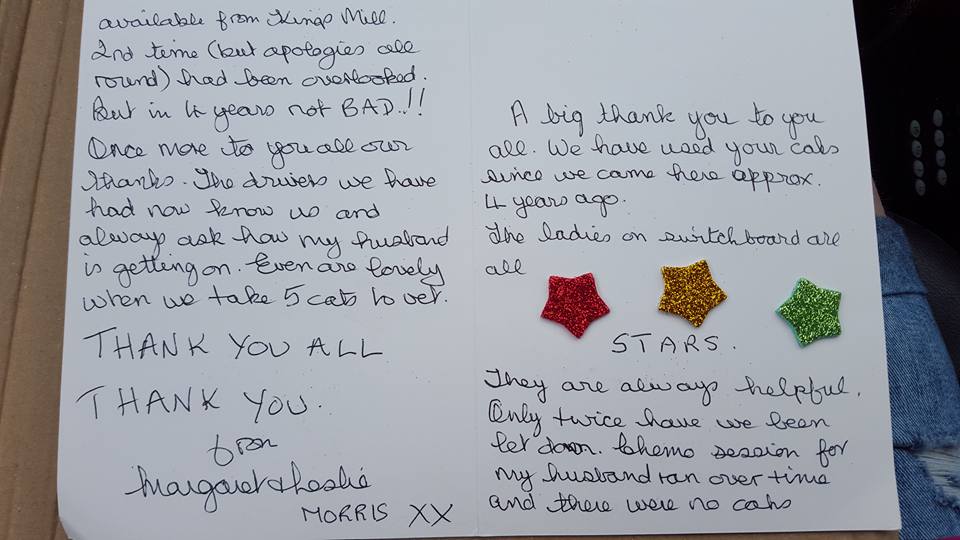 A big thank you to you
all. We have used your cabs
since we came here approx.
4 years ago.
The ladies on switchboard are
all
STARS.
They are always helpful.
Only twice have we been
let down. Chemo session for
my husband ran over time
and there were no cabs
available from Kings Mill.
2nd time (but apologies all
round) had been overlooked.
But in 4 years not BAD..!!
Once more to you all our
thanks. The drivers we have
had now know us and
always ask how my husband
is getting on. Even are lovely
when we take 5 cats to vet.
THANK YOU ALL
THANK YOU.
from
Margaret & Leslie
MORRIS XX